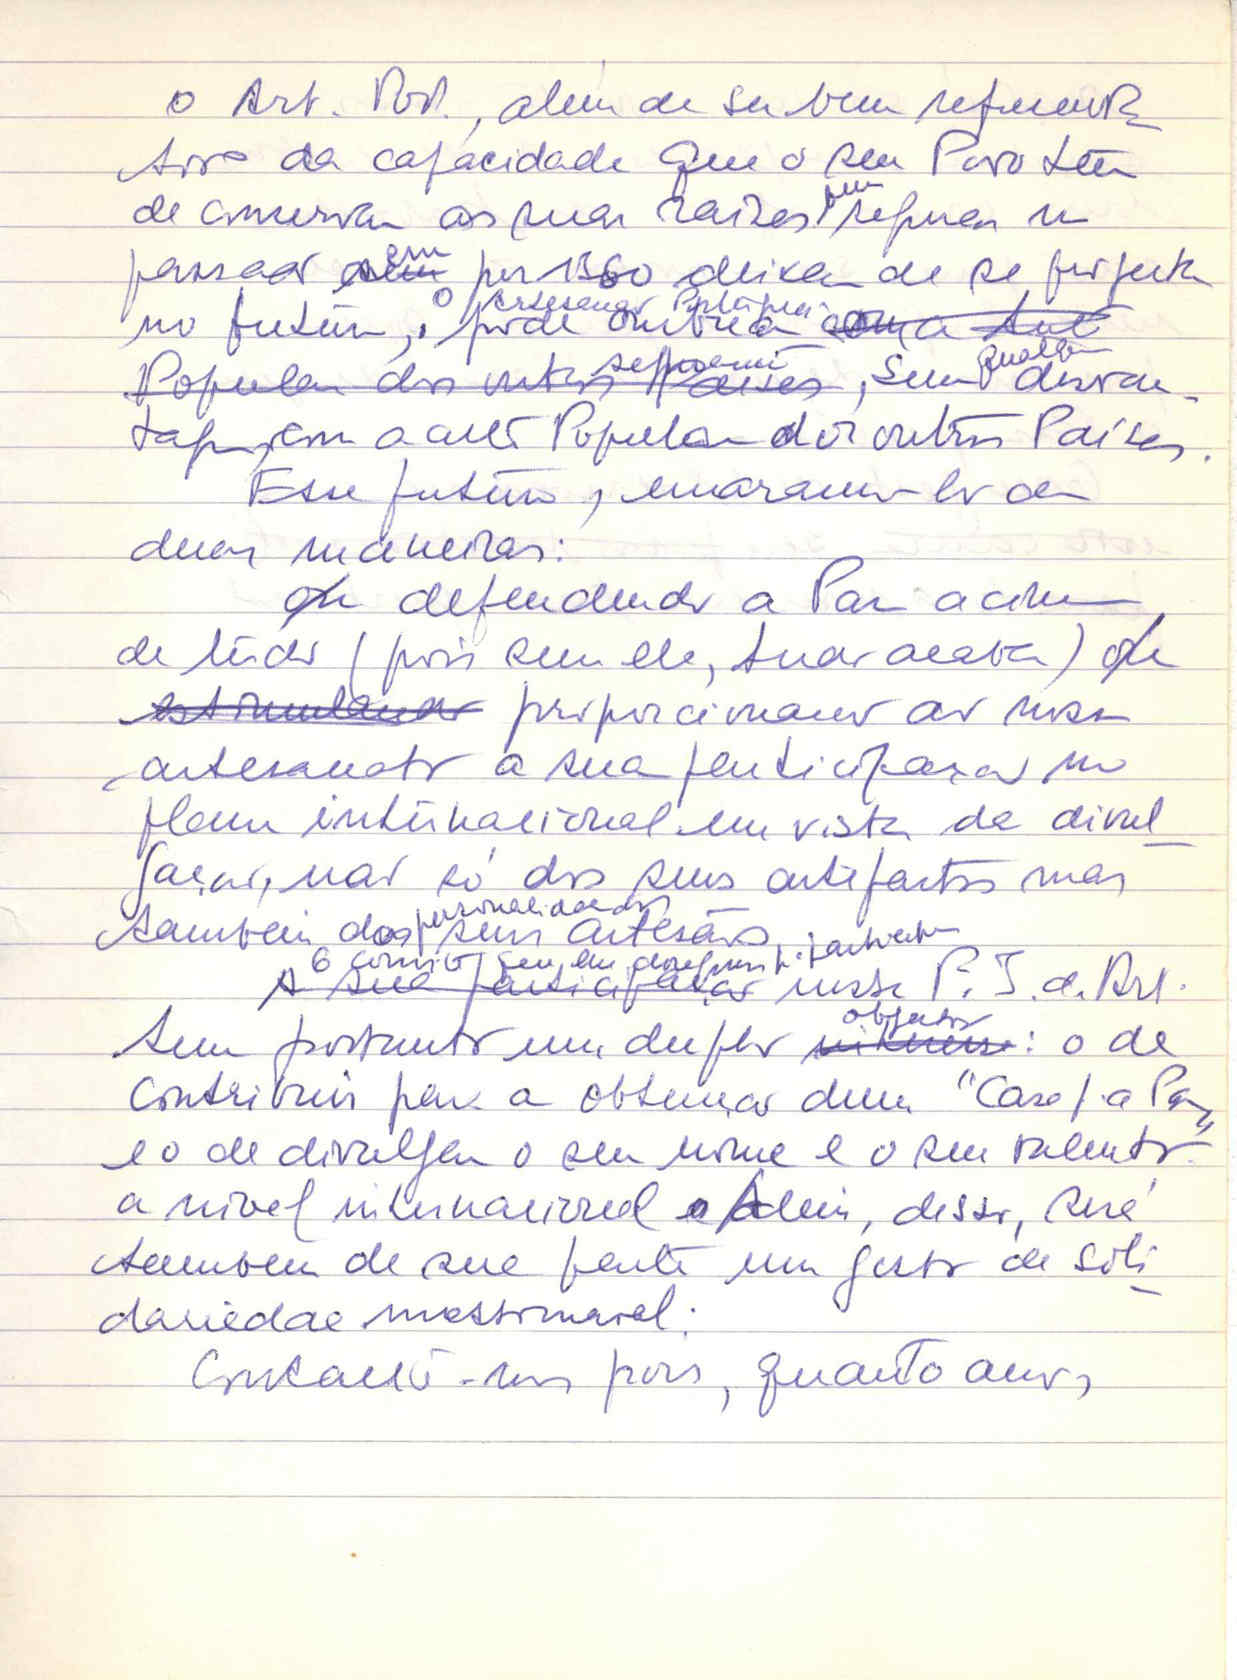 o Art. Port., além de ser bem representa
tivo da capacidade que o seu Povo tem
de conservar as suas raizes sem
passado sem em por isso deixar de se projectar
no futuro, o Artesanato Português pode ombrear com a Art
Popular dos outros Países, sem qualquer desvan-
tagem, com a arte Popular dos outros Países.
Esse futuro, encaramo-lo de
duas maneiras:
defendendo a Paz acima
de tudo (pois sem ela, tudo acaba) e
estimulando proporcionando ao nosso
artesanato a sua participação no
plano internacional em vista da divul
gação, não só dos seus artefactos mas
também das personalidades seus artesãos.
O convite que lhe
A sua participação nessa F. I. de Art.
tem portanto um duplo interesse objectivo: o de
contribuir para a obtenção duma "Casa p. a Paz"
e o de divulgar o seu nome e o seu talento
a nivel internacional e Além, disso, será
tambem de sua parte um gesto de soli
dariedade inestimavel.
Contacte-nos pois, quanto antes